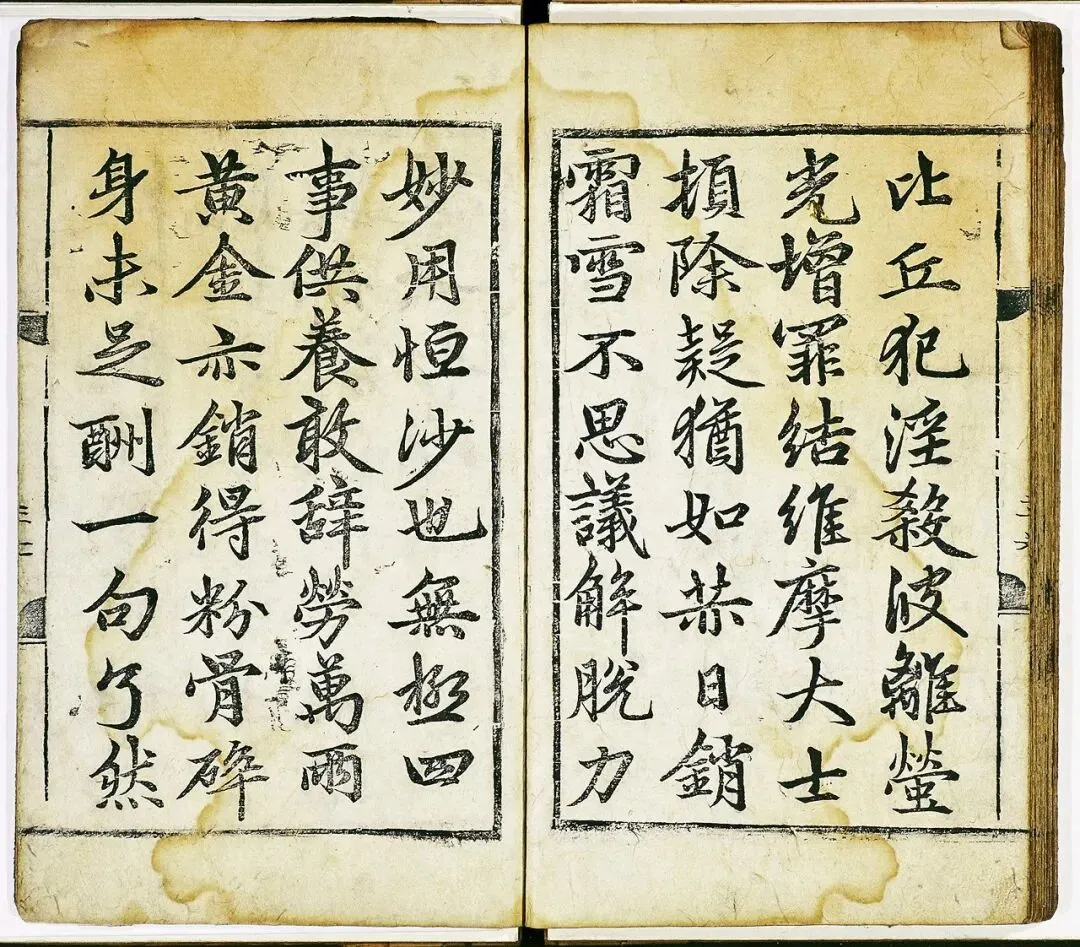 比丘犯淫殺波離螢
光增罪結維摩大士
頓除疑猶如赫日銷
霜雪不思議解脫力
妙用恒沙也無極四
事供養敢辞勞萬兩
黃金亦銷得粉骨碎
身未足酬一句了然